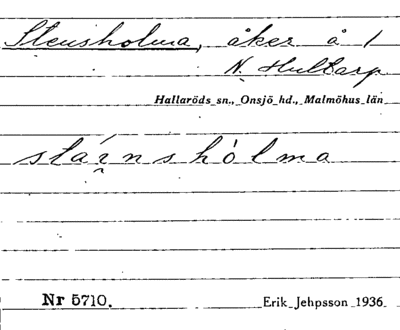 Stensholma, åker å 1
N. Hultarp
Hallaröds sn., Onsjö hd., Malmöhus län
stäŕ̯nshólma
Nr 5710.
Erik Jehpsson 1936